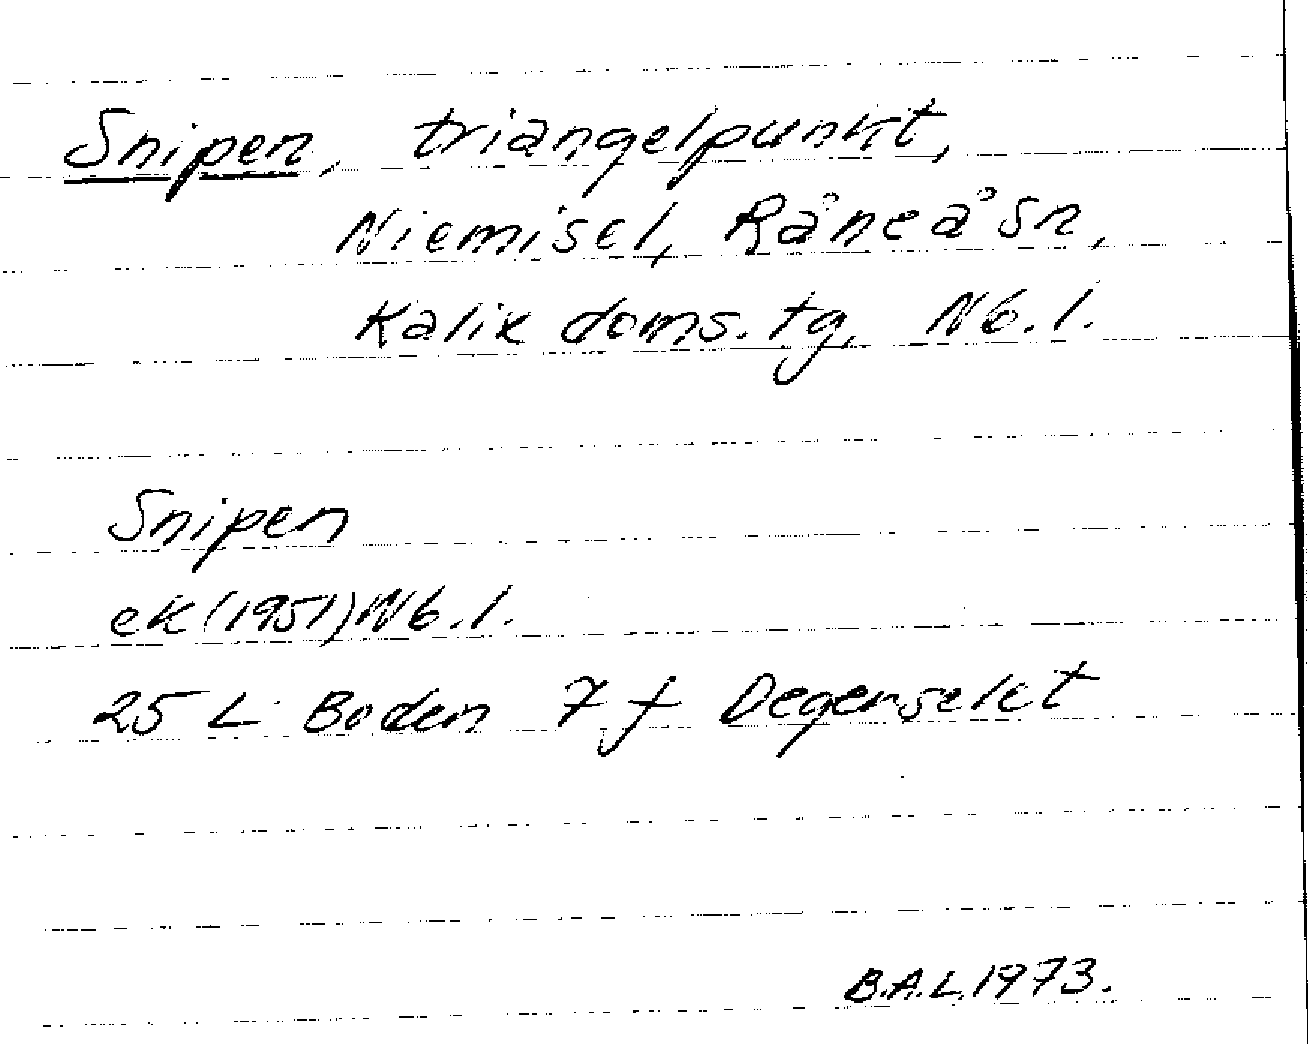 Snipen, triangelpunkt,
Niemisel, Råneå sn,
Kalix doms. tg, Nb. l.
Snipen
ek (1951) Nb. l.
25 L Boden 7 f Degerselet
B.A.L. 1973.